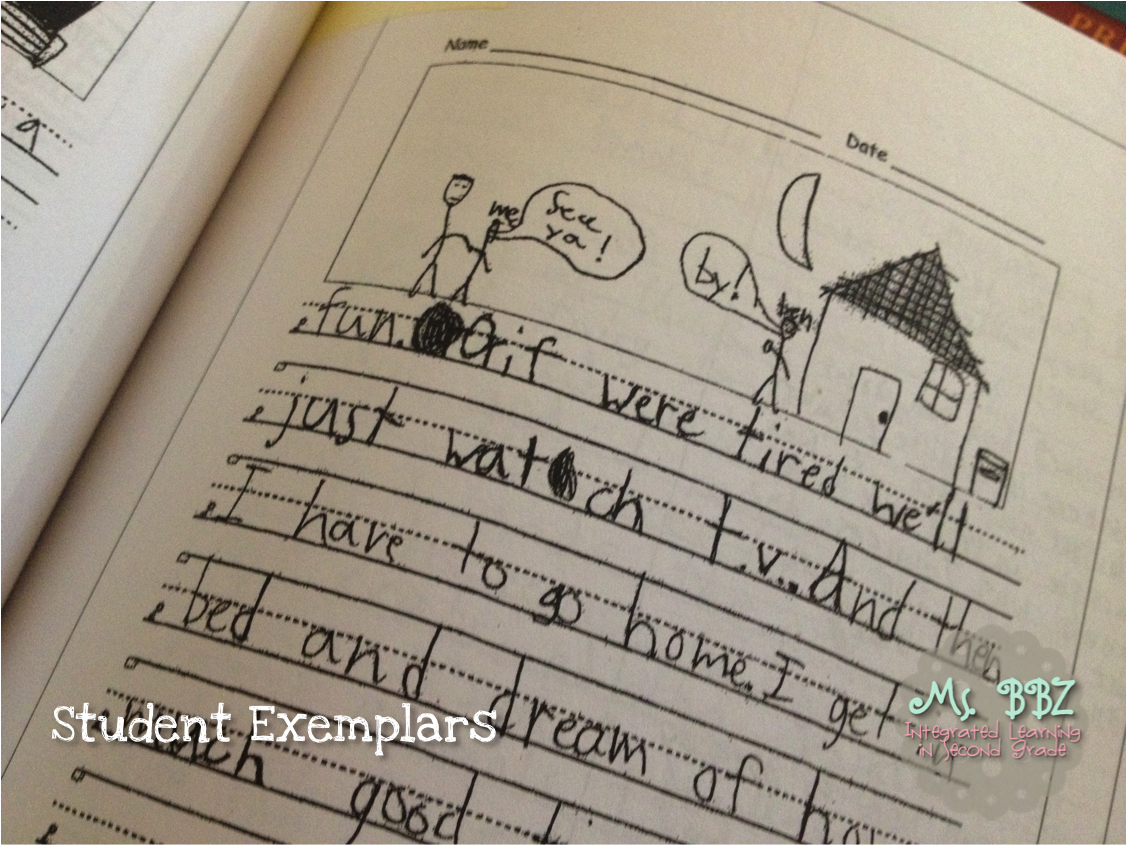 PR
a
Name
Date
me
See
ya!
by!
ben
fun. O,if were tired we'll
just watch t.v.. And then
I have to go home. I get
bed and dream of
much good
Student Exemplars
Ms. BBZ
Integrated Learning
in Second Grade